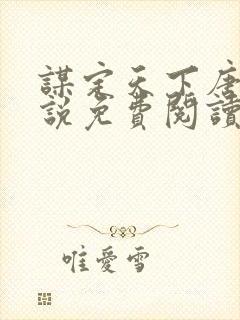 謀定天下唐
說免費閱讀
唯愛雪